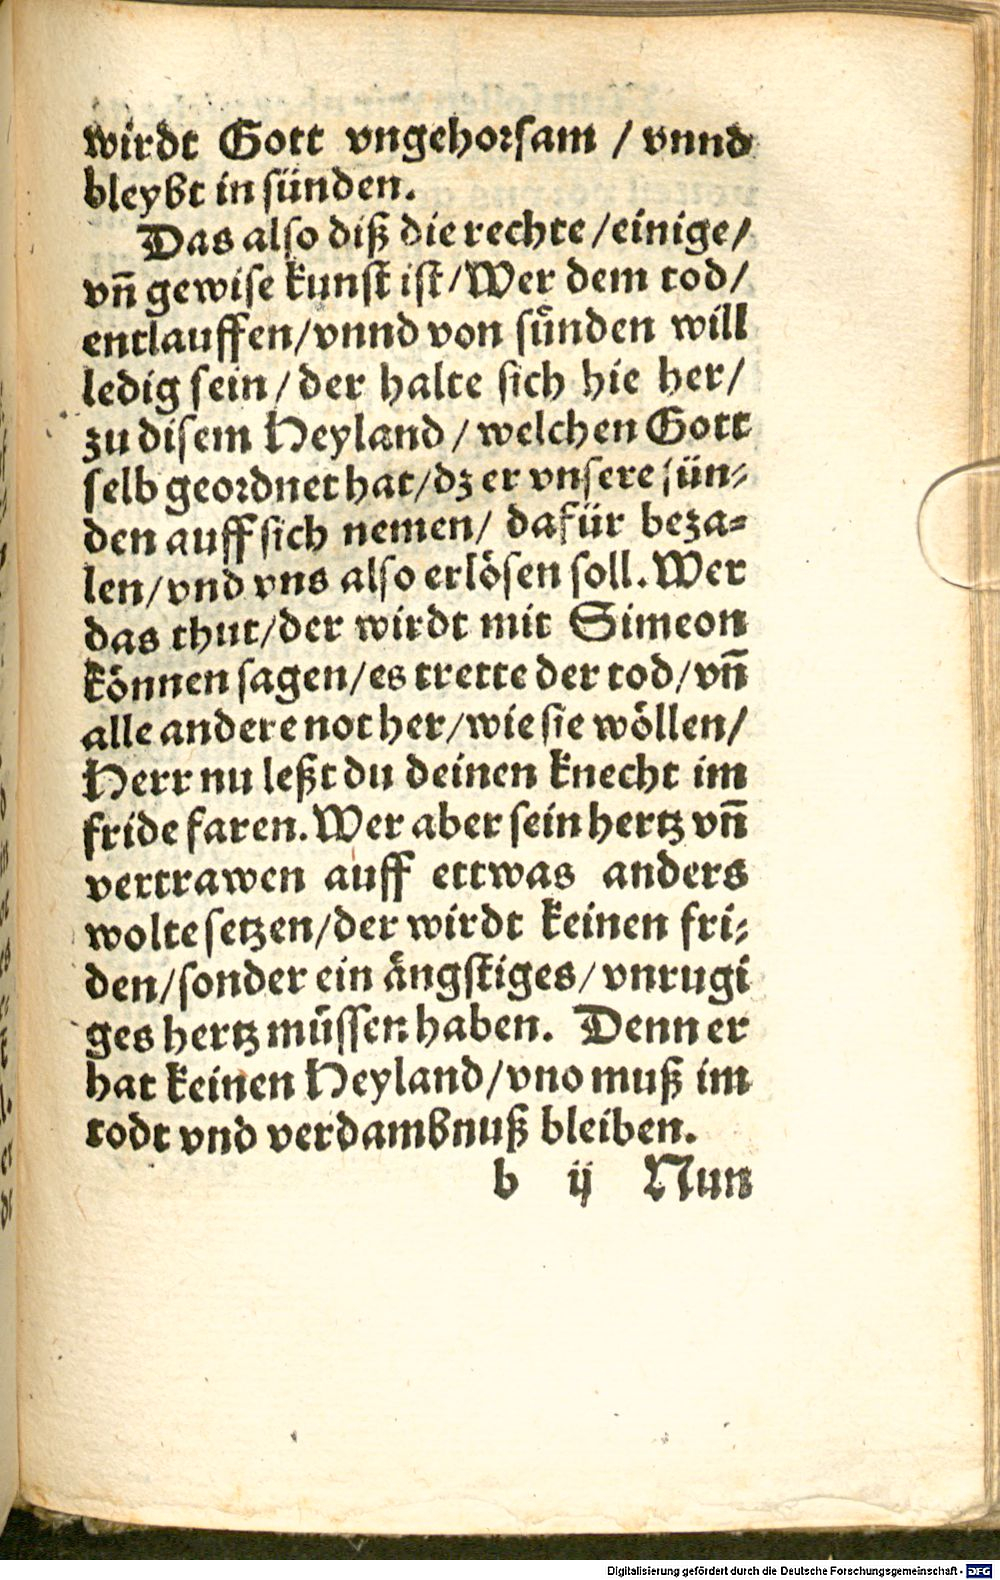 wirdt Gott vngehorsam / vnnd
bleybt in sünden.
Das also diß die rechte / einige /
vn̄ gewise kunst ist / Wer dem tod /
entlauffen / vnnd von sünden will
ledig sein / der halte sich hie her /
zu disem Heyland / welchen Gott
selb geordnet hat / dz er vnsere sün-
den auff sich nemen / dafür beza-
len / vnd vns also erlösen soll. Wer
das thut / der wirdt mit Simeon
können sagen / es trette der tod / vn̄
alle andere not her / wie sie wöllen /
Herr nu leßt du deinen knecht im
fride faren. Wer aber sein hertz vn̄
vertrawen auff ettwas anders
wolte setzen / der wirdt keinen fri-
den / sonder ein ängstiges / vnrugi
ges hertz müssen haben. Denn er
hat keinen Heyland / vno muß im
todt vnd verdambnuß bleiben.
b ij Nun
Digitalisierung gefördert durch die Deutsche Forschungsgemeinschaft - DFG